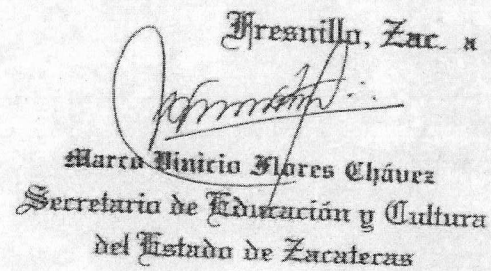 Fresnillo, Zac. a
Marco Vinicio Flores Chávez
Secretario de Educación y Cultura
del Estado de Zacatecas